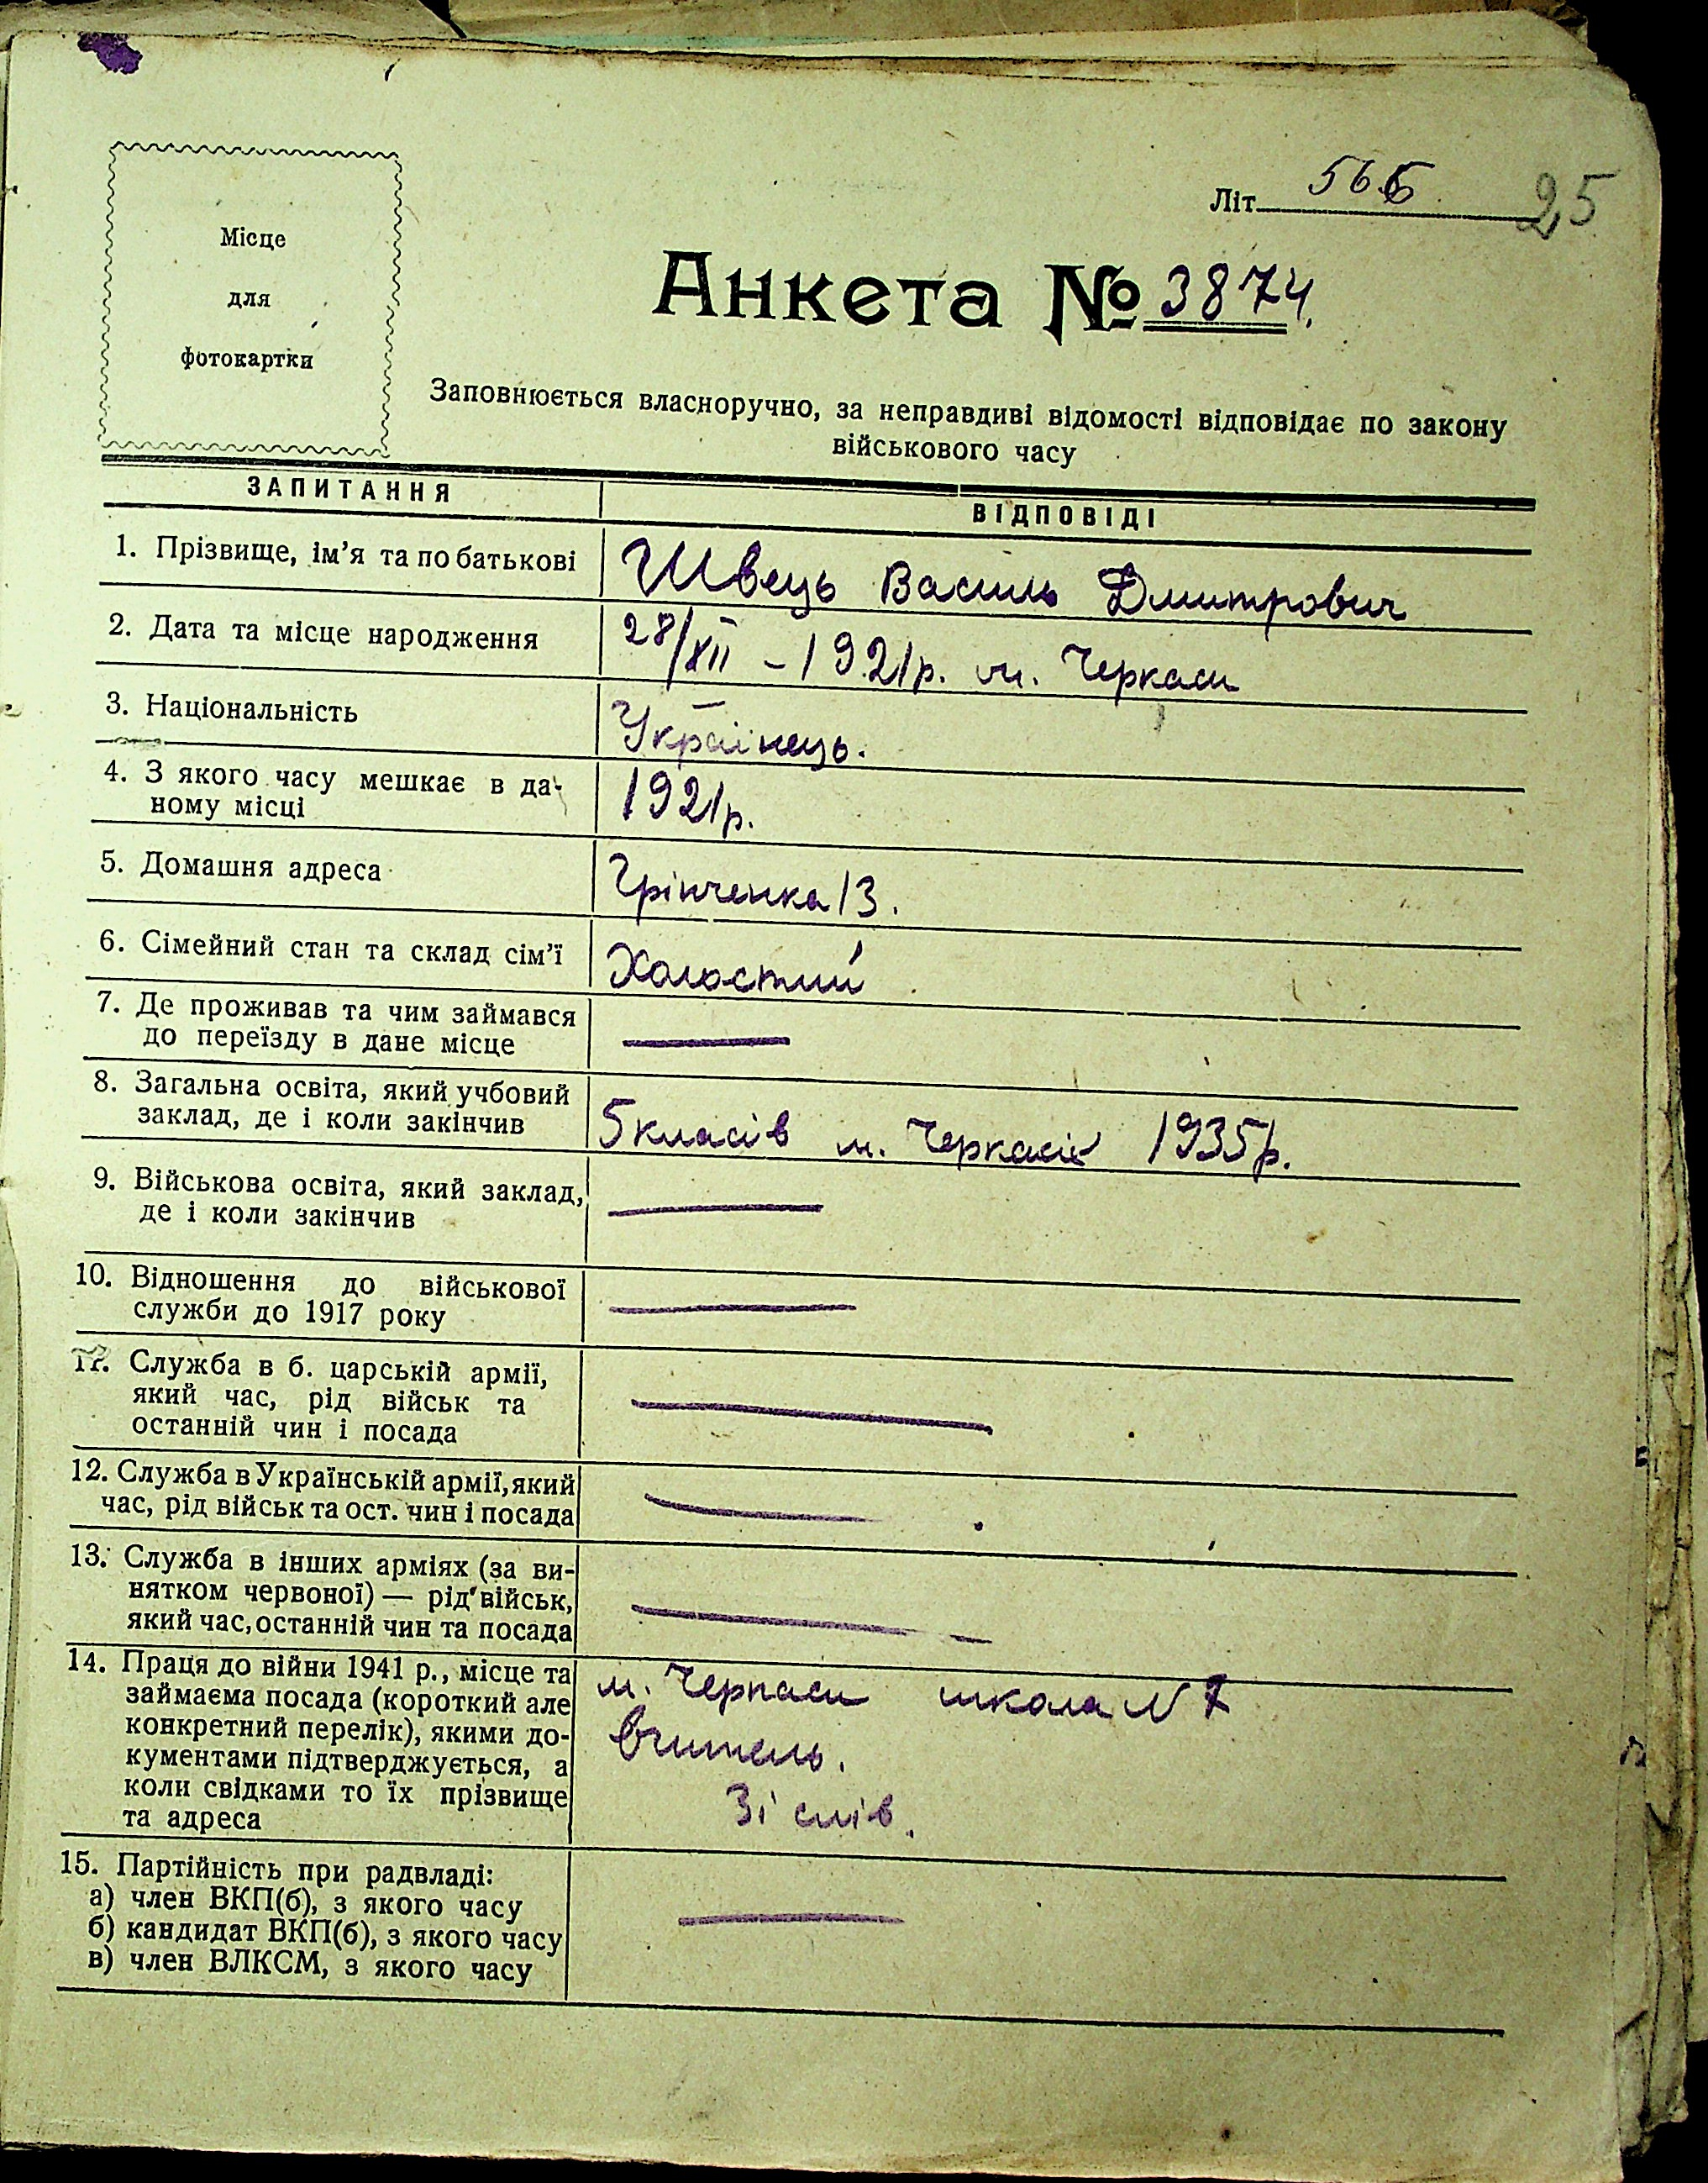 Місце
для
фотокартки
Літ. 566 25
Анкета № 3874.
Заповнюється власноручно, за неправдиві відомості відповідає по закону
військового часу
ЗАПИТАННЯ ВІДПОВІДІ
1. Прізвище, ім’я та по батькові Швець Василь Дмитрович
2. Дата та місце народження 28/XII – 1921р. м. Черкаси
3. Національність Українець.
4. З якого часу мешкає в да- 1921р.
ному місці
5. Домашня адреса Грінченка 13.
6. Сімейний стан та склад сім’ї Холостий
7. Де проживав та чим займався —
до переїзду в дане місце
8. Загальна освіта, який учбовий
заклад, де і коли закінчив 5 класів м. Черкасів 1935р.
9. Військова освіта, який заклад, —
де і коли закінчив
10. Відношення до військової —
служби до 1917 року
11. Служба в б. царській армії, —
який час, рід військ та
останній чин і посада
12. Служба в Українській армії, який —
час, рід військ та ост. чин і посада
13. Служба в інших арміях (за ви-
нятком червоної) — рід військ, —
який час, останній чин та посада
14. Праця до війни 1941 р., місце та м. Черкаси школа N 7
займаєма посада (короткий але
конкретний перелік), якими до- вчитель.
кументами підтверджується, а
коли свідками то їх прізвище Зі слів.
та адреса
15. Партійність при радвладі:
а) член ВКП(б), з якого часу —
б) кандидат ВКП(б), з якого часу
в) член ВЛКСМ, з якого часу